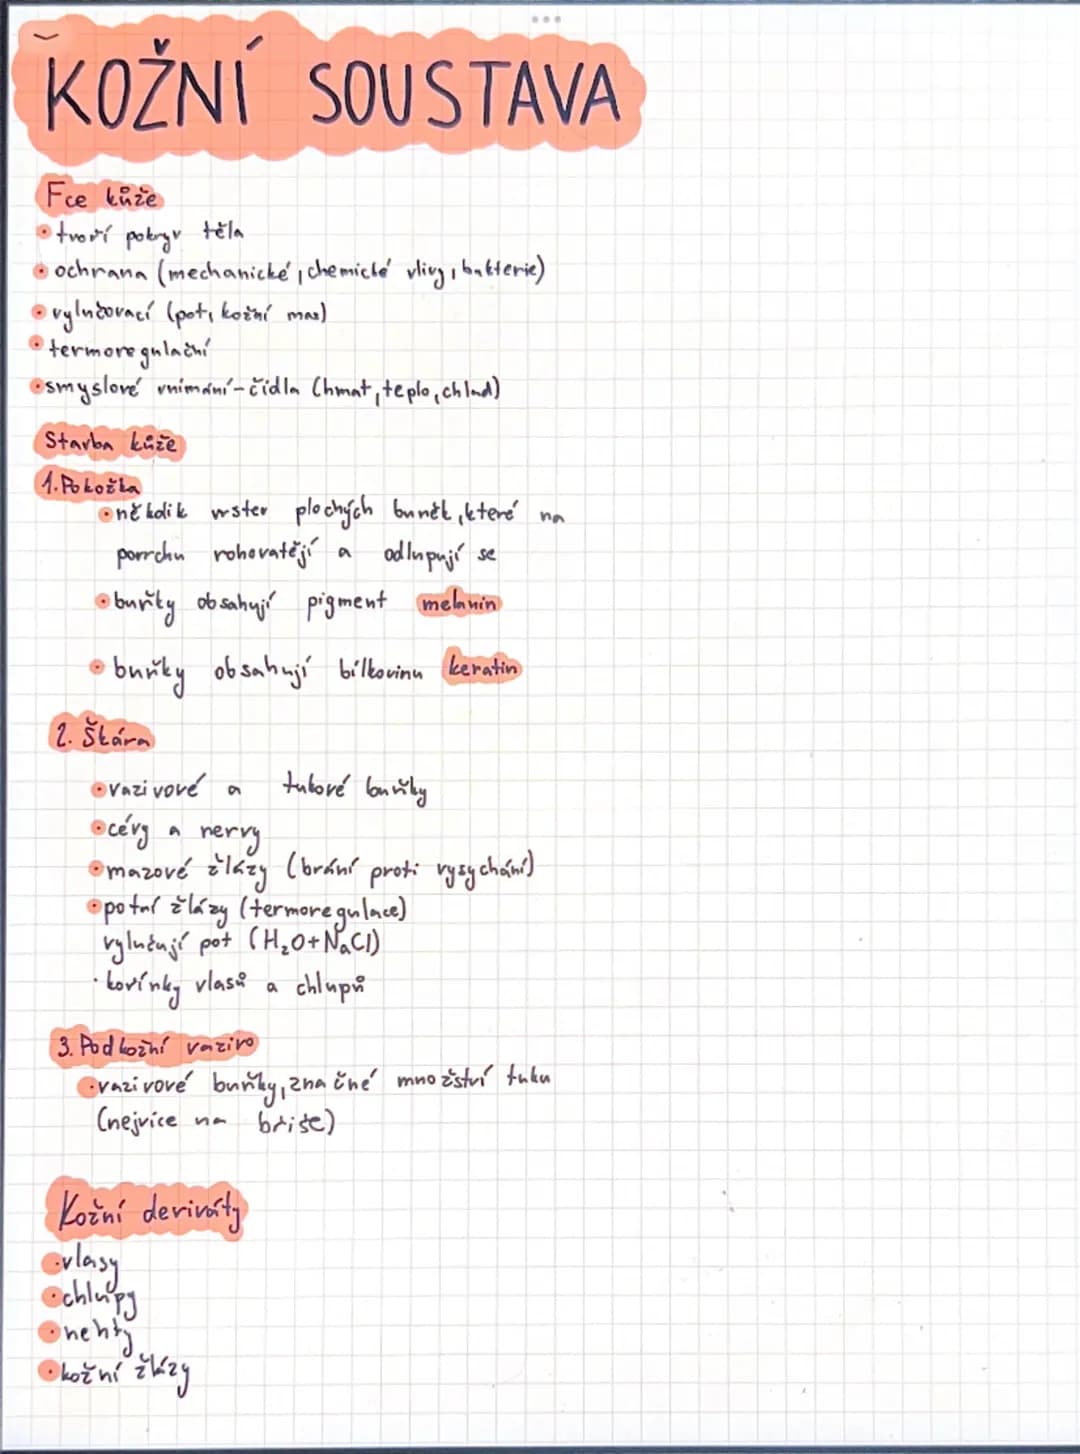 KOŽNÍ SOUSTAVA
Fce kůže
• tvoří pokryv těla
• ochrana (mechanické, chemické vlivy, bakterie)
• vylučovací (pot, kožní maz)
• termoregulační
• smyslové vnímání - čidla (hmat, teplo, chlad)
Stavba kůže
1. Pokožka
• několik vrstev plochých buněk, které na
povrchu rohovatějí a odlupují se
• buňky obsahují pigment melanin
• buňky obsahují bílkovinu keratin
2. Škára
• vazivové a tukové buňky
• cévy a nervy
• mazové žlázy (brání proti vysychání)
• potní žlázy (termoregulace)
vylučují pot (H₂O+NaCl)
• kořínky vlasů a chlupů
3. Podkožní vazivo
• vazivové buňky, značné množství tuku
(nejvíce na břiše)
Kožní deriváty
• vlasy
• chlupy
• nehty
• kožní žlázy